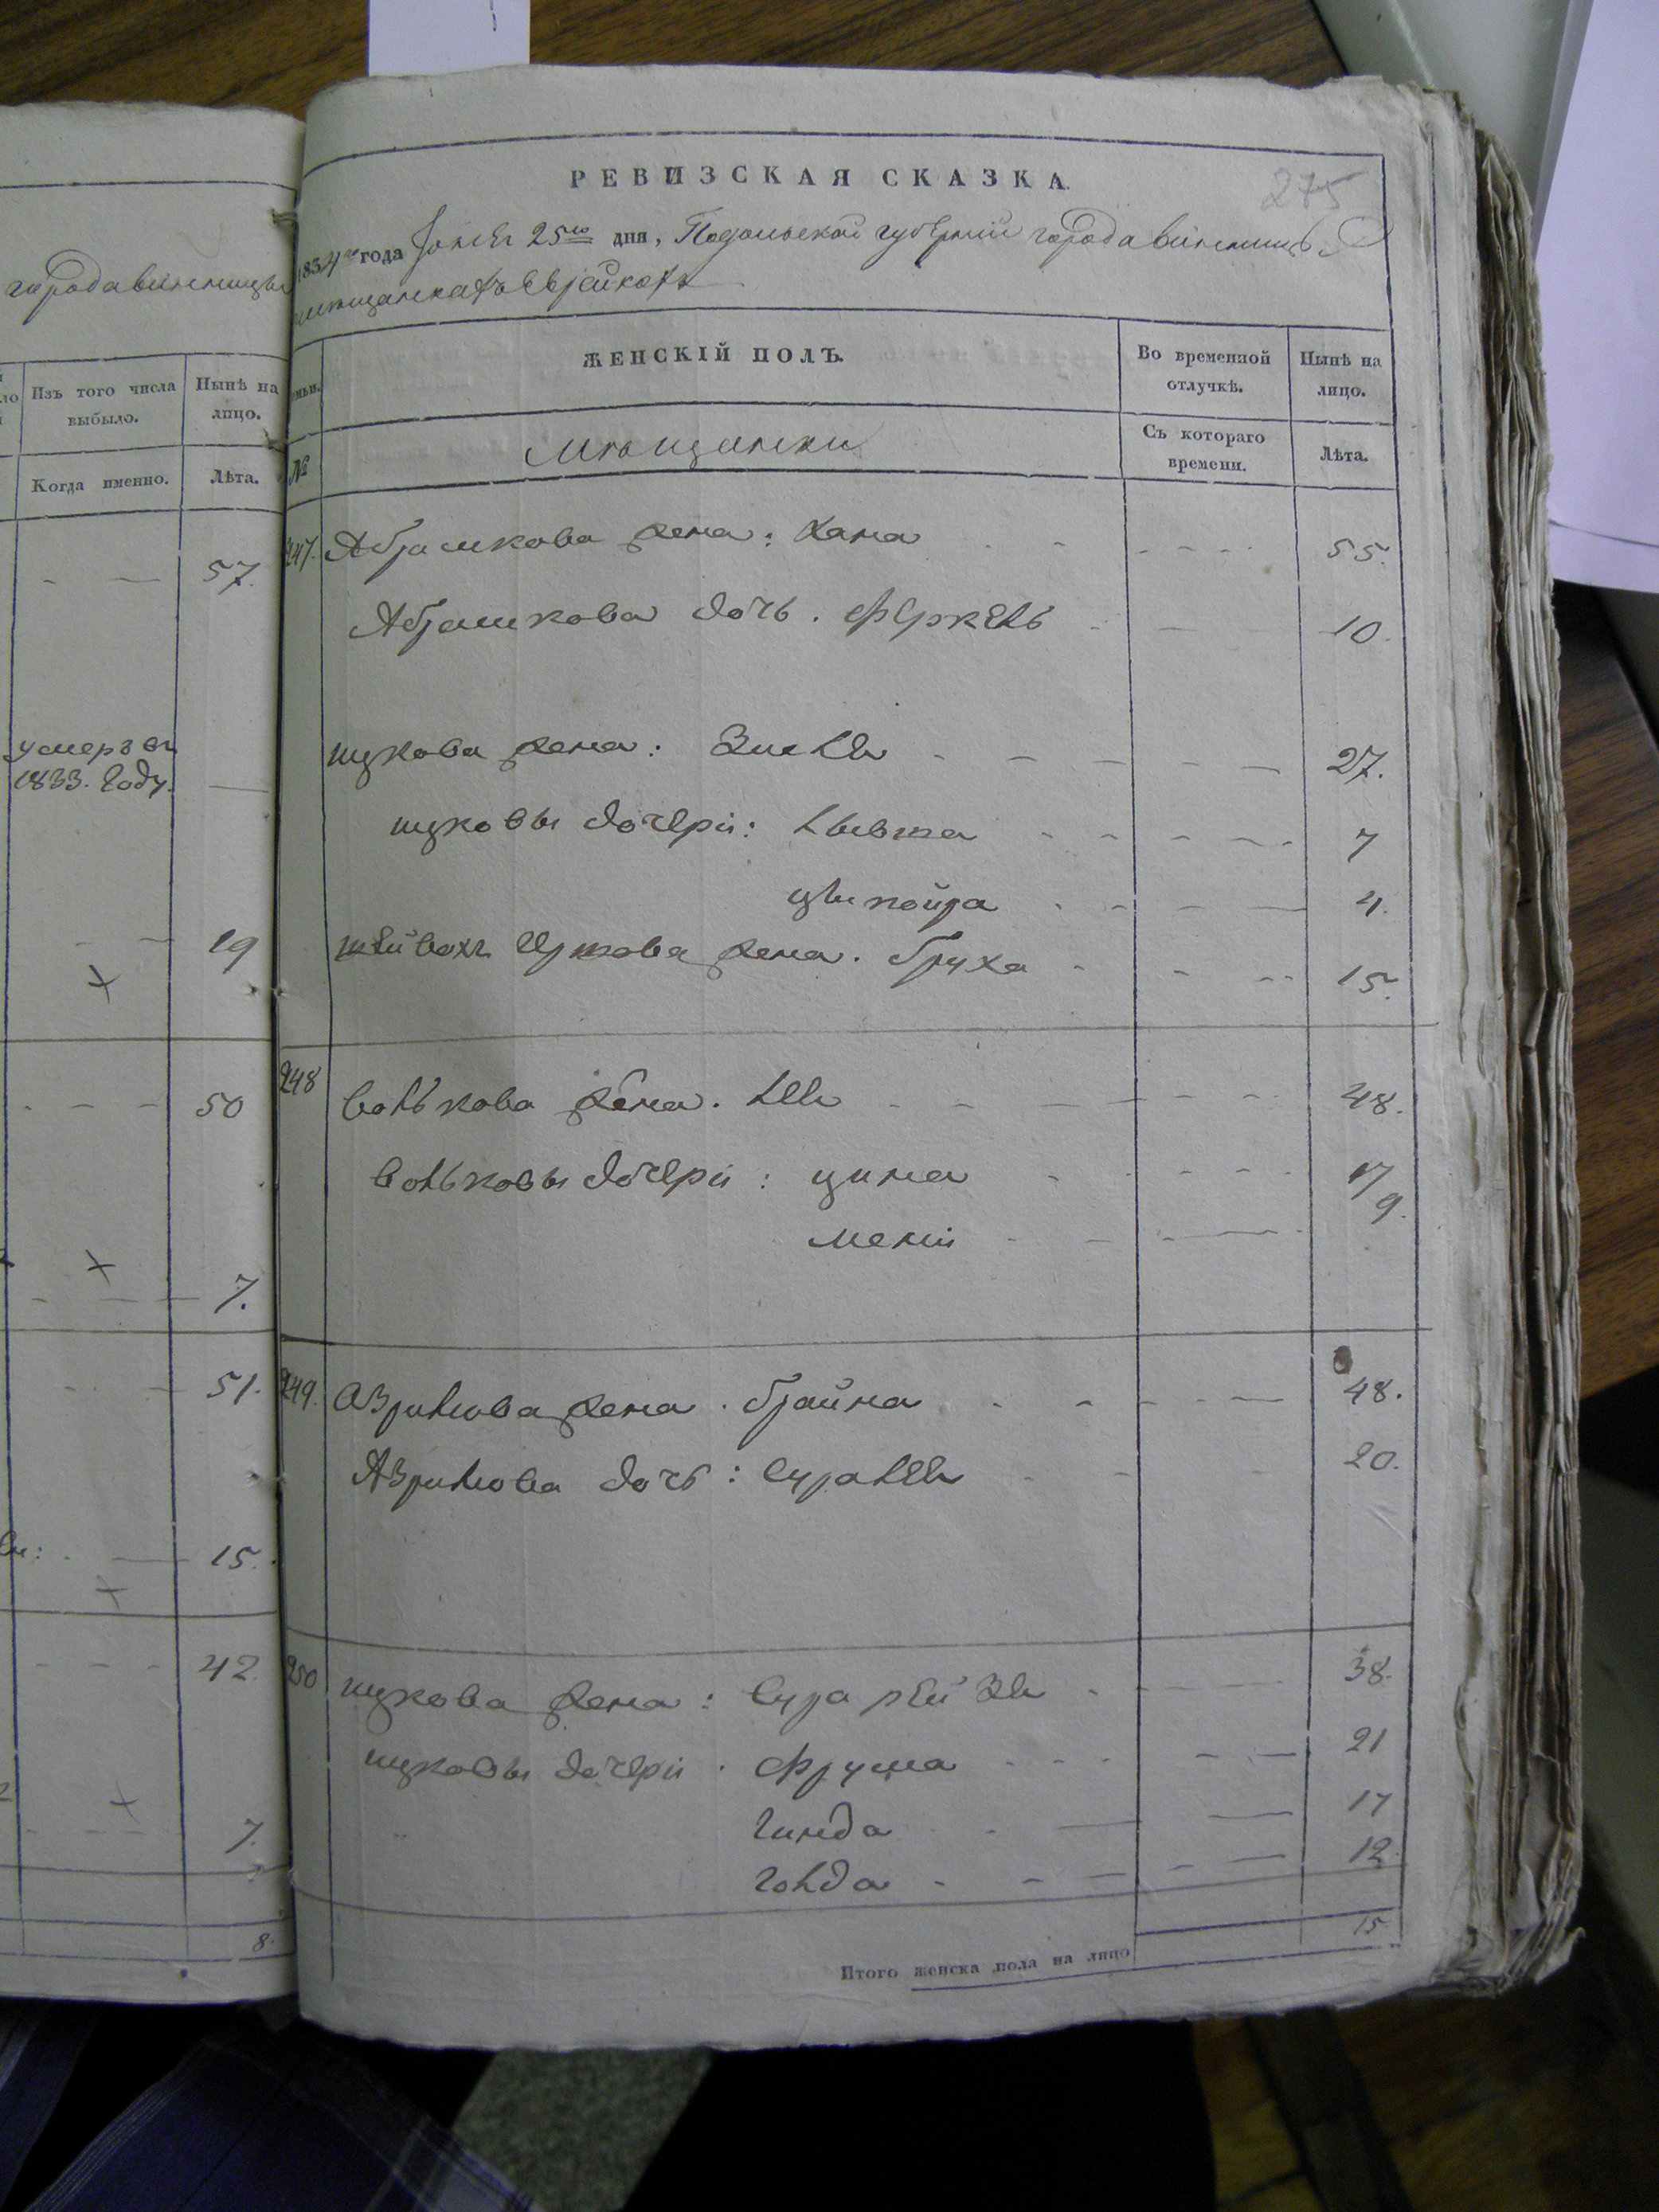 города винницы
Изъ того числа выбыло.
Нынѣ на лицо.
Когда именно.
Лѣта.
57.
умеръ въ
1833. году.
19
50
7.
51.
15.
42.
7.
8.
РЕВИЗСКАЯ СКАЗКА.
275
1834го года Іюня 25го дня, Подольской губерніи города винницы О
мѣщанкахъ Еврейкахъ
№
ЖЕНСКІЙ ПОЛЪ.
Во временной отлучкѣ.
Нынѣ на лицо.
Мѣщанки
Съ котораго времени.
Лѣта.
247. Абрамкова жена: Хана 55.
Абрамкова дочь. Феркель 10.
ицкова жена: Зисля 27.
ицковы дочери: Ливша 7
ципойра 4.
лейбохъ Гершова жена. бруха 15.
248 Волькова жена. Лея 48.
Вольковы дочери: цина 17
мени 9.
249. Азрилiова жена. брайна 48.
Азрилiова дочь: Сура лея 20.
250 ицкова жена: Сура рейзя 38.
ицковы дочери. Фрума 21
Гинда 17
Голда 12.
Итого женска пола на лицо 15